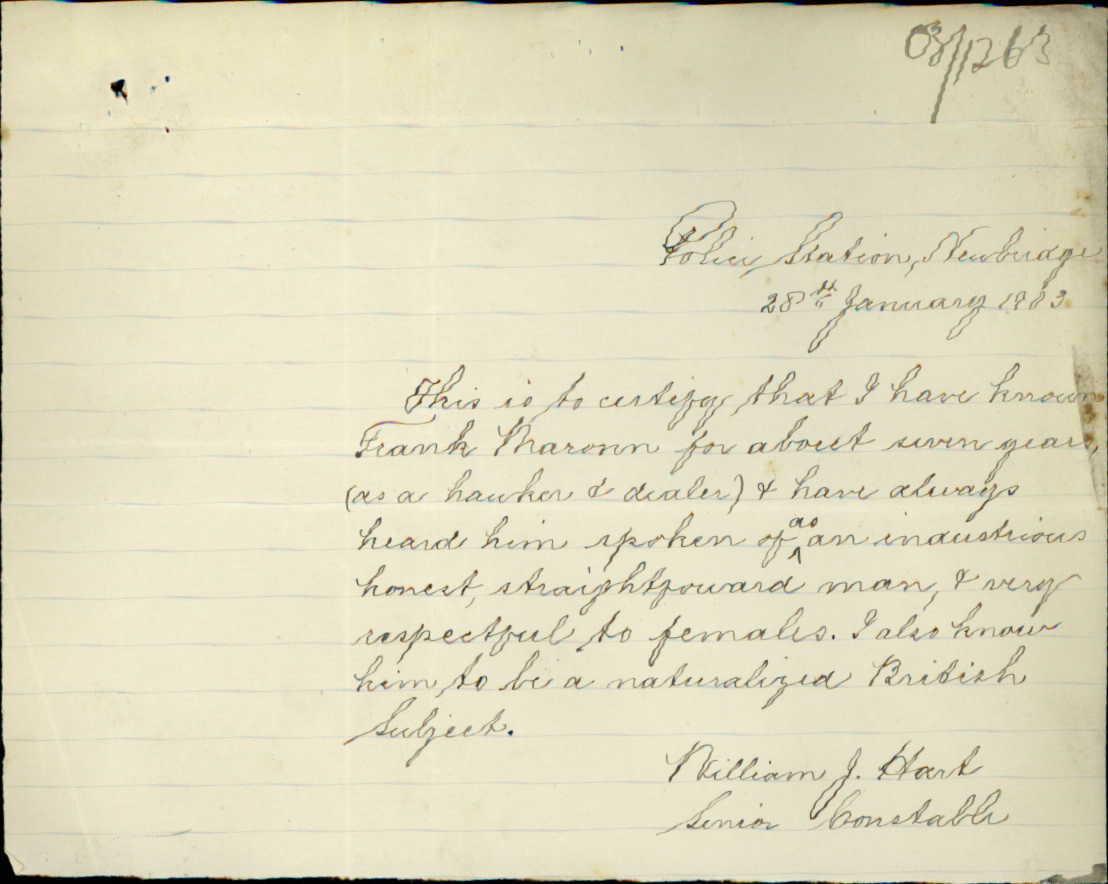 03/1263
Police Station, Newbridge
28th January 1903
This is to certify that I have known
Frank Maronn for about seven years,
(as a hawker & dealer) & have always
heard him spoken of as an industrious
honest, straightforward man, & very
respectful to females. I also know
him to be a naturalized British
Subject.
William J. Hart
Senior Constable